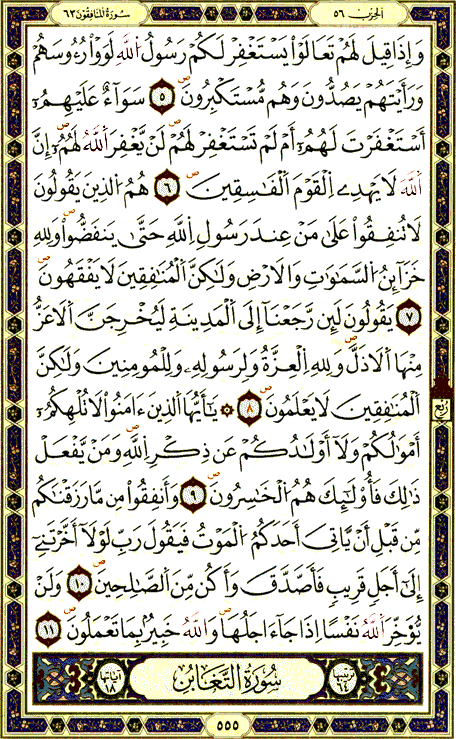 الحزب ٥٦
سورة المنافقون ٦٣
وَإِذَا قِيلَ لَهُمْ تَعَالَوْاْ يَسْتَغْفِرْ لَكُمْ رَسُولُ اُللَّهِ لَوَوْاْ رُءُوسَهُمْ
وَرَأَيْتَهُمْ يَصُدُّونَ وَهُم مُّسْتَكْبِرُونَۖ ٥ سَوَآءٌ عَلَيْهِمُۥٓ
أَسْتَغْفَرْتَ لَهُمُۥٓ أَمْ لَمْ تَسْتَغْفِرْ لَهُمْ لَنْ يَّغْفِرَ اَللَّهُ لَهُمُۥٓۖ إِنَّ
اَللَّهَ لَا يَهْدِے اِلْقَوْمَ اَلْفَٰسِقِينَۖ ٦ هُمُ اُلذِينَ يَقُولُونَ
لَا تُنفِقُواْ عَلَىٰ مَنْ عِندَ رَسُولِ اِللَّهِ حَتَّىٰ يَنفَضُّواْۖ وَلِلهِ
خَزَآئِنُ اُلسَّمَٰوَٰتِ وَالَارْضِ وَلَٰكِنَّ اَلْمُنَٰفِقِينَ لَا يَفْقَهُونَۖ
٧ يَقُولُونَ لَئِن رَّجَعْنَآ إِلَى اَلْمَدِينَةِ لَيُخْرِجَنَّ اَلَاعَزُّ
مِنْهَا اَلَاذَلَّۖ وَلِلهِ اِلْعِزَّةُ وَلِرَسُولِهِۦ وَلِلْمُومِنِينَ وَلَٰكِنَّ
اَلْمُنَٰفِقِينَ لَا يَعْلَمُونَۖ ٨ ۞ يَٰٓأَيُّهَا اَلذِينَ ءَامَنُواْ لَا تُلْهِكُمُۥٓ
أَمْوَٰلُكُمْ وَلَآ أَوْلَٰدُكُمْ عَن ذِكْرِ اِللَّهِۖ وَمَنْ يَّفْعَلْ
ذَٰلِكَ فَأُوْلَٰٓئِكَ هُمُ اُلْخَٰسِرُونَۖ ٩ وَأَنفِقُواْ مِن مَّا رَزَقْنَٰكُم
مِّن قَبْلِ أَنْ يَّاتِيَ أَحَدَكُمُ اُلْمَوْتُ فَيَقُولَ رَبِّ لَوْلَآ أَخَّرْتَنِےٓ
إِلَىٰٓ أَجَلٖ قَرِيبٖ فَأَصَّدَّقَ وَأَكُن مِّنَ اَلصَّٰلِحِينَۖ ١٠ وَلَنْ
يُّؤَخِّرَ اَللَّهُ نَفْسًا اِذَا جَآءَ اجَلُهَاۖ وَاللَّهُ خَبِيرُۢ بِمَا تَعْمَلُونَۖ ١١
ربع
ترتيبها ٦٤
سُورَةُ التَّغَابُنِ
آياتها ١٨
٥٥٥